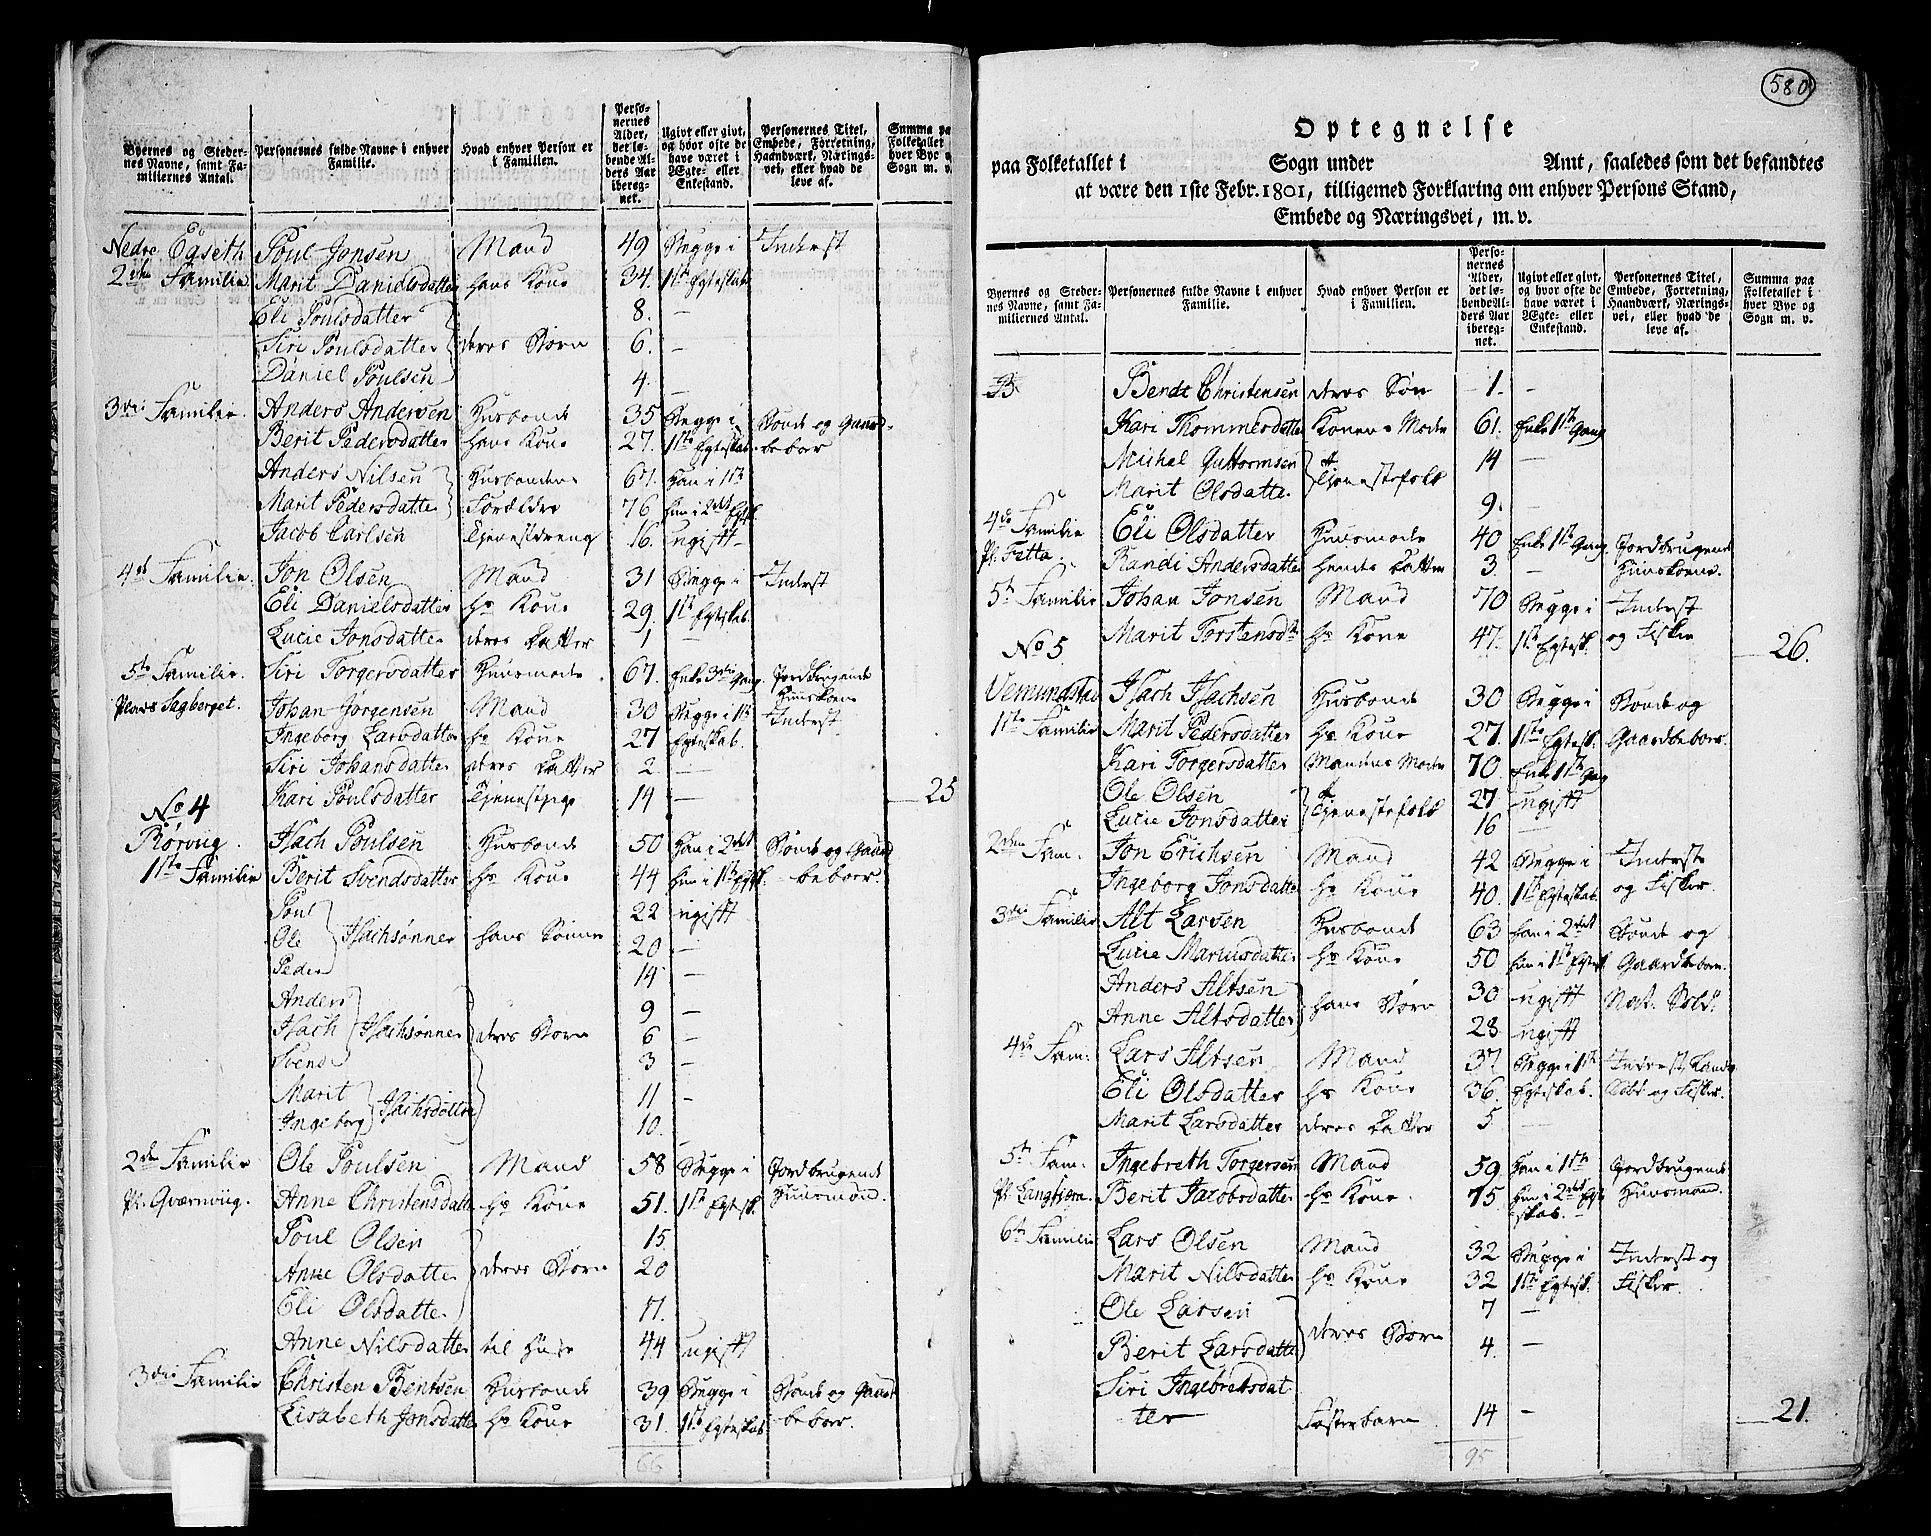 Byernes og Stedernes Navne, samt Familiernes Antal.
Personernes fulde Navne i enhver Familie.
Hvad enhver Person er i Familien.
Personernes Alder, det løbende Alders Aar iberegnet.
Ugivt eller givt, og hvor ofte de have været i Ægte- eller Enkestand.
Personernes Titel, Embede, Forretning, Haandværk, Næringsvei, eller hvad de leve af.
Summa paa Folketallet i hver Bye og Sogn m. v.
Nedre Egseth Poul Jonsen Mand 49 Begge i Inderst
2den Familie Marit Danielsdatter hans Kone 34. 1ste Egteskab
Eli Poulsdatter 8. —
Siri Poulsdatter deres Børn 6. —
Daniel Poulsen 4. —
3die Familie. Anders Andersen Husbonde 35 Begge i Bonde og Gaard-
Berit Pedersdatter hans Kone 27. 1ste Egteskab beboer
Anders Nilsen Husbondens 67. Han i 1ste
Marit Pedersdatter Forældre 76 hun i 2det Egtsk.
Jacob Carlsen Tienestdreng 16. ugift
4de Familie. Jon Olsen Mand 31 Begge i Inderst
Eli Danielsdatter hs Kone 29. 1ste Egteskab
Lucie Jonsdatter deres Datter 1
5te Familie. Siri Torgersdatter Huusmoder 67. Enke 3die Gang. Jordbrugende
Plads Sagberget. Huuskone
Johan Jørgensen Mand 30 Begge i 1ste Inderst
Ingeborg Larsdatter hs Kone 27 Egteskab.
Siri Johansdatter deres Datter 2. —
Kari Poulsdatter Tienestpige 14 — 25
No 4
Rørvig. Isach Poulsen Husbonde 50 Han i 2det Bonde og Gaard
1ste Familie Berit Svendsdatter hs Kone 44 hun i 1ste Egtsk. beboer.
Poul 22 ugift
Ole Isachsønner hans Sønner 20 —
Peder 14 —
Anders 9 —
Isach Isachsønner deres Børn 6 —
Svend 3 —
Marit 11 —
Ingeborg Isachsdøttre 10. —
2den Familie Ole Poulsen Mand 58 Begge i Jordbrugende
Pl. Qværnviig. Anne Christensdatter hs Kone 51. 1ste Egtesk. Huusmand.
Poul Olsen 15.
Anne Olsdatter deres Børn 20
Eli Olsdatter 17.
Anne Nilsdatter til Huse 44 ugift
3die Familie Christen Bentsen Husbonde 39 Begge i Bonde og Gaard
Lisabeth Jonsdatter hs Kone 31. 1ste Egteskab beboer.
66
580
Optegnelse
paa Folketallet i Sogn under Amt, saaledes som det befandtes
at være den 1ste Febr. 1801, tilligemed Forklaring om enhver Persons Stand,
Embede og Næringsvei, m. v.
Byernes og Stedernes Navne, samt Familiernes Antal.
Personernes fulde Navne i enhver Familie.
Hvad enhver Person er i Familien.
Personernes Alder, det løbende Alders Aar iberegnet.
Ugivt eller givt, og hvor ofte de have været i Ægte- eller Enkestand.
Personernes Titel, Embede, Forretning, Haandværk, Næringsvei, eller hvad de leve af.
Summa paa Folketallet i hver Bye og Sogn m. v.
Bendt Christensen deres Søn 1. —
Kari Thommesdatter Konens Moder 61. Enke 1ste Gang
Michel Guttormsen 14 —
Marit Olsdatter Tienestefolk 9. —
4de Familie Eli Olsdatter Huusmoder 40 Enke 1ste Gang Jordbrugende
Pl. Fetta. Randi Andersdatter hendes Datter 3. — Huuskone.
5te Familie Johan Jonsen Mand 70 Begge i Inderst
Marit Torstensdtr hs Kone 47. 1ste Egtesk. og Fisker 26.
No 5.
Vemundstad Isach Isachsen Husbonde 30 Begge i Bonde og
1ste Familie Marit Pedersdatter hs Kone 27. 1ste Egtesk. Gaardbeboer.
Kari Torgersdatter Mandens Moder 70. Enke 1ste Gang
Ole Olsen 27 ugift
Lucie Jonsdatter Tienestefolk 16 —
2den Fam. Jon Erichsen Mand 42 Begge i Inderst
Ingeborg Jonsdatter hs Kone 40. 1ste Egteskab. og Fisker.
3die Familie Alt Larsen Husbonde 63 han i 2det Bonde og
Lucie Mariusdatter hs Kone 50 hun i 1ste Egtsk. Gaardbeboer.
Anders Altsen 30 ugift Nat. Sold.
Anne Altsdatter hans Børn 28 ugift
4de Fam: Lars Altsen Mand 37 Begge i 1ste Inderst,
Eli Olsdatter hs Kone 36. Egteskab. og Fisker.
Marit Larsdatter deres Datter 5 —
5te Fam. Ingebreth Torgersen Mand 59 Han i 1ste Jordbrugende
Berit Jacobsdatter hs Kone. 75. hun i 2det Egteskab. Huusmand.
6te Familie Lars Olsen Mand 32 Begge i Inderst og
Marit Nilsdatter hs Kone 32 1ste Egtesk. Fisker.
Ole Larsen 7 —
Berit Larsdatter deres Børn 4. —
Siri Ingebretsdat
ter Fosterbarn 14 — 21.
95